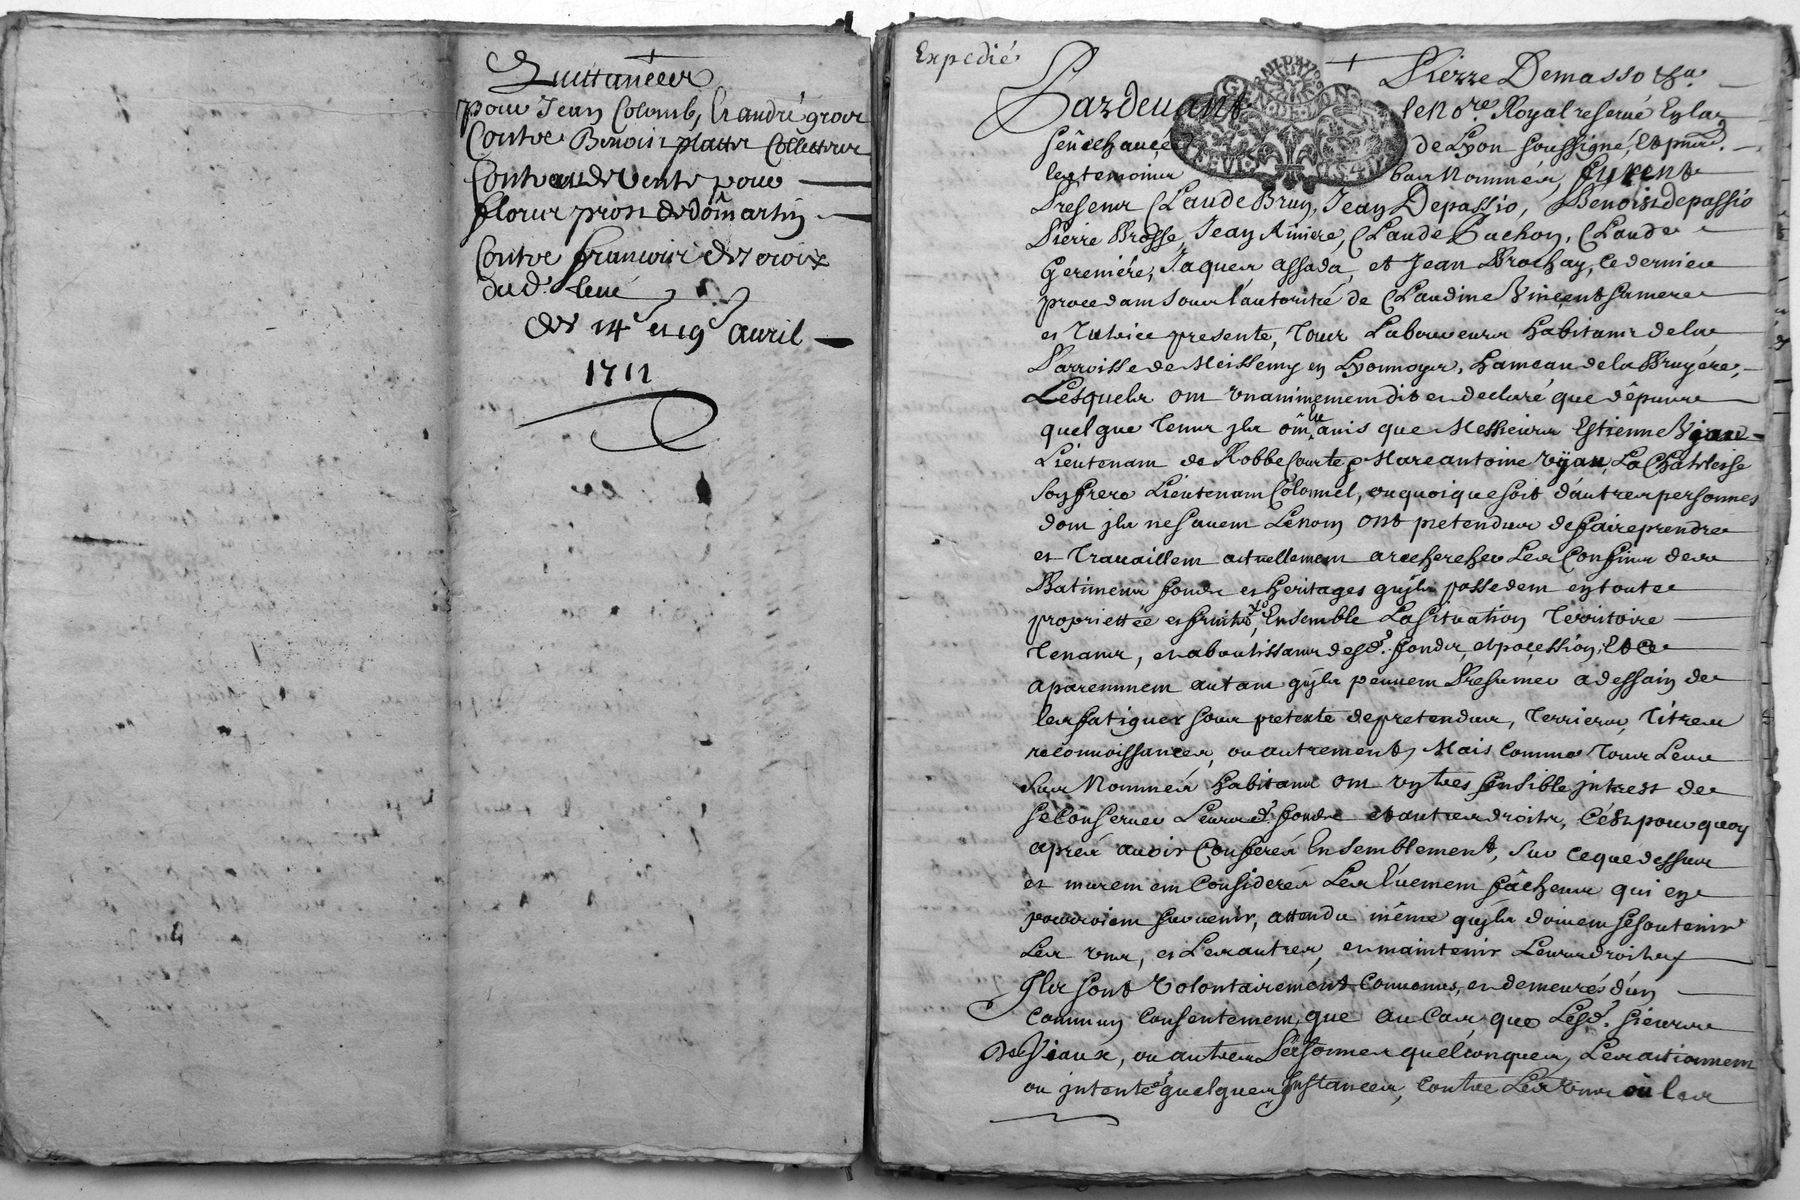 Quittances
pour Jean Colomb, et andré
Contre Benoist platte Collecteur
Contract de Vente pour
fleurs prost de dômartin
Contre françois des croix
dud. lieu
des 14e et 19e auril
1711
Expedié
Pierre Demasso
Pardeuant le no.re Royal reserué En la
sénéchaucée de Lyon soussigné, Et pnts.
les temoins bas Nommés, furent
Presens Claude Brun, Jean Depassio, Benoist depassio
Pierre Brosse, Jean Riuiere, Claude Cuchon, Claude
Gereniére, Jaques assada, et Jean Brochay, ce dernier
procedant sous l'autorité de Claudine Vincent sa mere
et Tutrice presente, Tous Laboureurs habitans de la
Parroisse de Meissemy en Lyonnois, hameau de la Bruyére,
Lesquels ont vnanimement dit et declaré que dépuis
quelque Tems jls ont eu auis que Messieurs Estienne Vjau
Lieutenant de Robbe courte et Marc antoine vjau, La Chalaise
son frere Lieutenant Colonnel, ou quoique soit d'autres personnes
dont jls ne sauent Le nom ont pretendus de faire prendre
et Trauaillent actuellement a rechercher Les Confins des
Batimens fonds et heritages qujls possedent en toute
proprietée et fruits, Ensemble La situation Territoire
Tenans, et aboutissans desd. fonds, et pocession, Et Ce
aparemment autant qujls peuuent Presumer a dessain de
les fatiguer sous pretexte de pretendus, Terriers, Titres
reconnoissances, ou autrement, Mais comme Tous Les
sus Nommés habitans ont vn tres sensible jnterest de
se Conseruer Leursd. fonds et autres droits, C'est pourquoy
aprés auoir Conferés Ensemblement, sur ce que dessus
et murement Considerés Les Euemens fâcheux qui en
pouroient suruenir, attendu même qujls doiuent se soutenir
Les vns, et Les autres, et maintenir Leurs droits,
Jls sont Volontairement Conuenus, et demeurés d'un
Commun Consentement, que au Cas que Lesd. sieurs
Des Viaux, ou autres Personnes quelconques, Les actionnent
ou jntente quelques jnstances, contre Les vns ou les